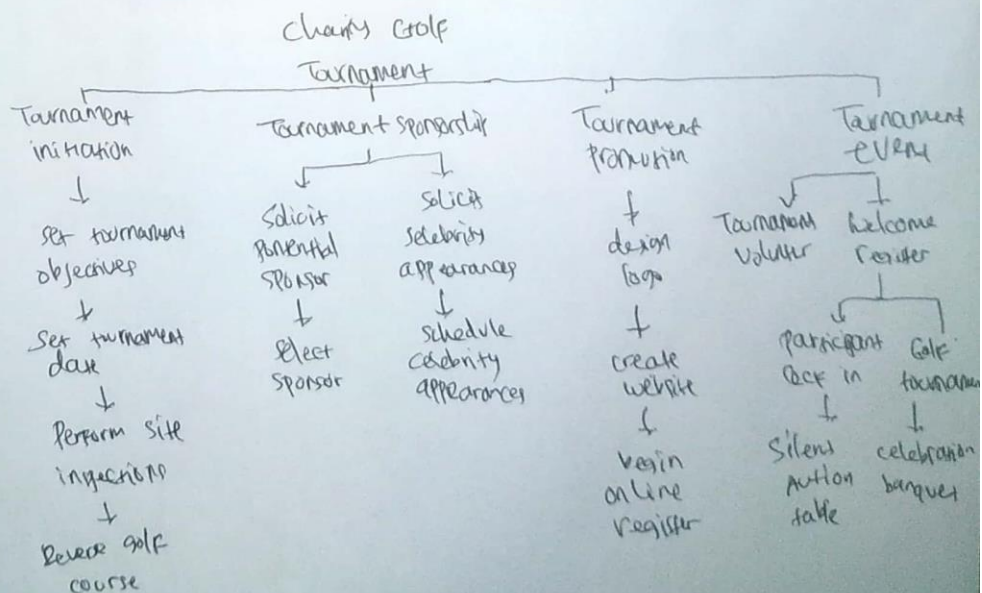 Charity Golf
Tournament
Tournament
initiation
Set tournament
objectives
Set tournament
date
Perform site
inspections
Reserve golf
course
Tournament sponsorship
Solicit
potential
sponsor
Select
sponsor
Solicit
selebrity
appearances
Schedule
celebrity
appearances
Tournament
Promotion
design
logo
create
website
begin
online
register
Tournament
event
Tournament
volunter
welcome
register
participant
in
Silent
Aution
table
Golf
tournamen
celebration
banquet